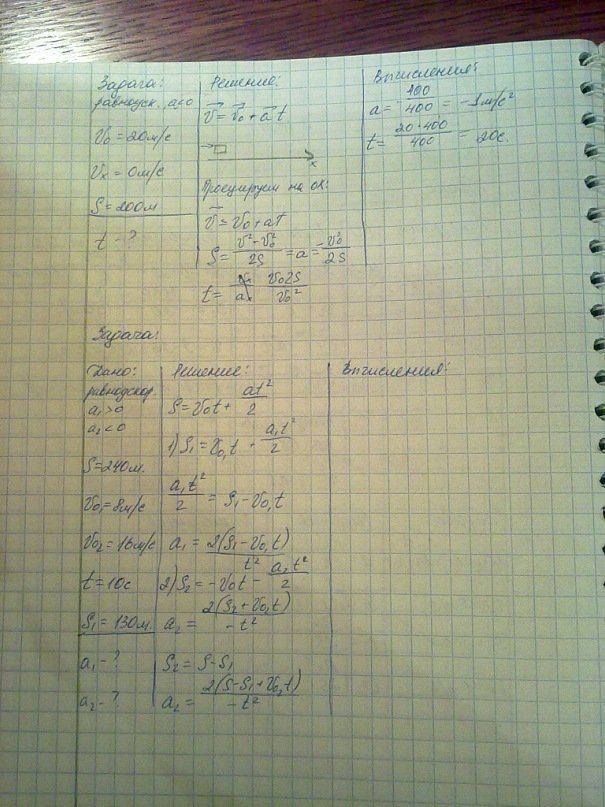 Задача:
равноуск., a<0
V₀ = 20м/с
Vₓ = 0м/с
S = 200м
t - ?
Решение:
V⃗ = V⃗₀ + a⃗ t
x
Проецируем на ОХ:
V⃗ = V₀ + at
S = (V² - V₀²)/2S = a = -V₀²/2S
t = Vₓ/aₓ V₀2S/V₀²
Вычисления:
a = -400/400 = -1м/с²
t = 20·400/400 = 20с.
Задача:
Дано:
равноускор.
a₁>0
a₂<0
S=240м.
V₀₁=8м/с
V₀₂=16м/с
t=10с
S₁=130м.
a₁ - ?
a₂ - ?
Решение:
S = V₀t + at²/2
1) S₁ = V₀₁t + a₁t²/2
a₁t²/2 = S₁ - V₀₁t
a₁ = 2(S₁ - V₀₁t)/t²
2) S₂ = -V₀t - a₂t²/2
a₂ = 2(S₂ + V₀₂t)/-t²
S₂ = S - S₁
a₂ = 2(S - S₁ + V₀₂t)/-t²
Вычисления: